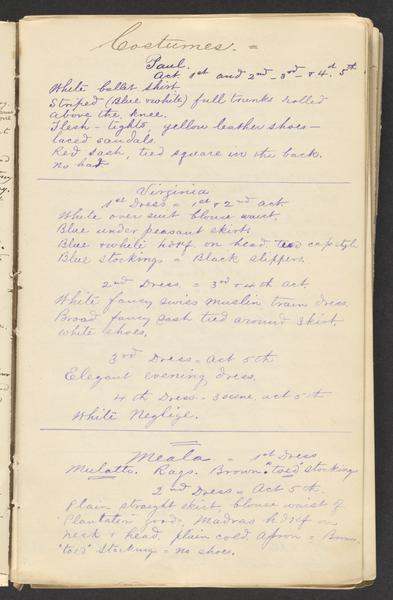 Costumes. =
Paul.
Act 1st and 2nd - 3rd - & 4th. 5th.
White ballet shirt
Striped (Blue & white) full trunks rolled
above the knee.
Flesh - tights, yellow leather shoes -
laced sandals.
Red sash, tied square in the back.
No hat
Virginia
1st Dress = 1st & 2nd act.
White over suit blouse waist.
Blue under peasant skirt.
Blue & white hdkf on head tied cap style
Blue stockings = Black slippers.
2nd Dress. = 3rd & 4th act.
White fancy swiss muslin train dress.
Broad fancy sash tied around skirt.
White shoes.
3rd Dress = Act 5th
Elegant evening dress.
4th Dress = 3 scene, act 5th
White Neglige.
Meala = 1st Dress
Mulatto. Rags. Brown "toed" stockings
2nd Dress = Act 5th.
Plain straight skirt, blouse waist of
Plantation goods, Madras hdkf on
neck & head, plain cold. Apron = Brown
"toed" stocking = no shoes.